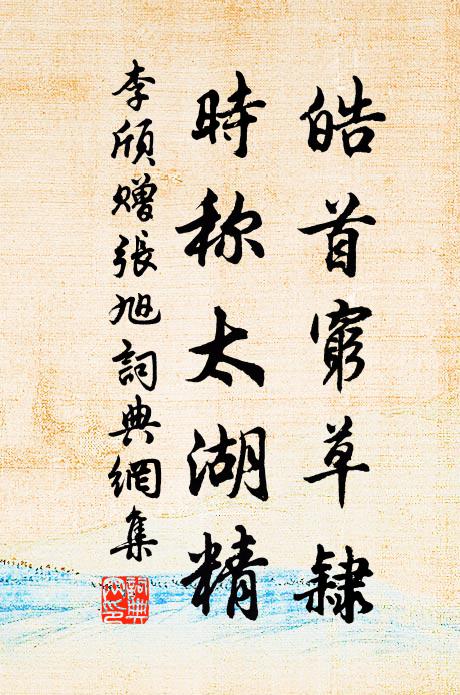 皓首窮草隸
時称太湖精
李頎贈張旭詞典網集